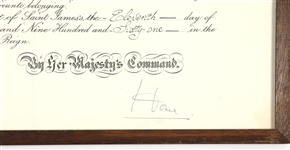 reunto belonging
t of Saint James's the Eleventh day of
and Nine Hundred and Sixty one in the
Reign.
By Her Majesty's Command.
Home